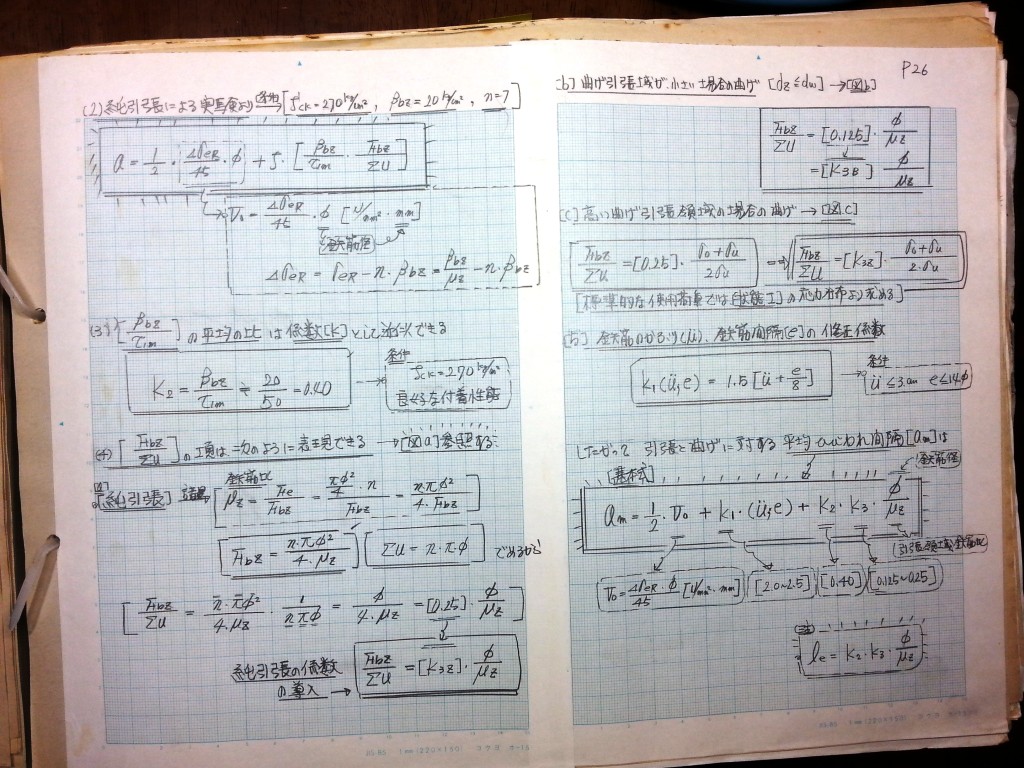 (2) 純引張による実験より [ fck=270kg/cm², βbz=20kg/cm², n=7 ]
a = 1/2 · ΔσeR/45 · φ + ζ · [ βbz/τim · Fbz/ΣU ]
V₀ = ΔσeR/45 · φ [ N/mm² · mm ]
鉄筋径
ΔσeR = σeR - n · βbz = βbz/μz - n · βbz
(3) [ βbz/τim ] の平均の比は係数[K]として
K2 = βbz/τim ≒ 20/50 = 0.40
条件
fck=270kg/cm²
良好な付着性能
(4) [ Fbz/ΣU ] の項は次のように表現できる → [図a]参照する
[a]
[純引張]
鉄筋比
μz = Fe/Fbz = πφ²/4 · n / Fbz = nπφ²/4·Fbz
Fbz = nπφ²/4·μz
ΣU = n·π·φ
であるから
[ Fbz/ΣU = n·πφ²/4·μz · 1/nπφ = φ/4·μz = [0.25] · φ/μz ]
純引張の係数
の導入 →
Fbz/ΣU = [K3Z] · φ/μz
P26
(b) 曲げ引張域が小さい場合の曲げ [dz≦dw] → [図b]
Fbz/ΣU = [0.125] · φ/μz
= [K3B] φ/μz
[C] 高い曲げ引張領域の場合の曲げ → [図.C]
Fbz/ΣU = [0.25] · σo+σu/2σu ⇒ Fbz/ΣU = [K3Z] · σo+σu/2·σu
[標準的な使用荷重では[状態I]の応力分布より求める]
鉄筋のかぶり(ü), 鉄筋間隔[e]の修正係数
K1(ü,e) = 1.5 [ ü + e/8 ]
条件
ü≦3cm e≦14φ
したがって 引張と曲げに対する平均ひびわれ間隔[am]は
[基本式]
鉄筋径
am = 1/2 · V₀ + K1·(ü,e) + K2·K3·φ/μz
引張領域鉄筋比
V₀ = ΔσeR·φ/45 [N/mm²·mm]
[2.0~2.5]
[0.40]
[0.125~0.25]
注
le = K2·K3·φ/μz